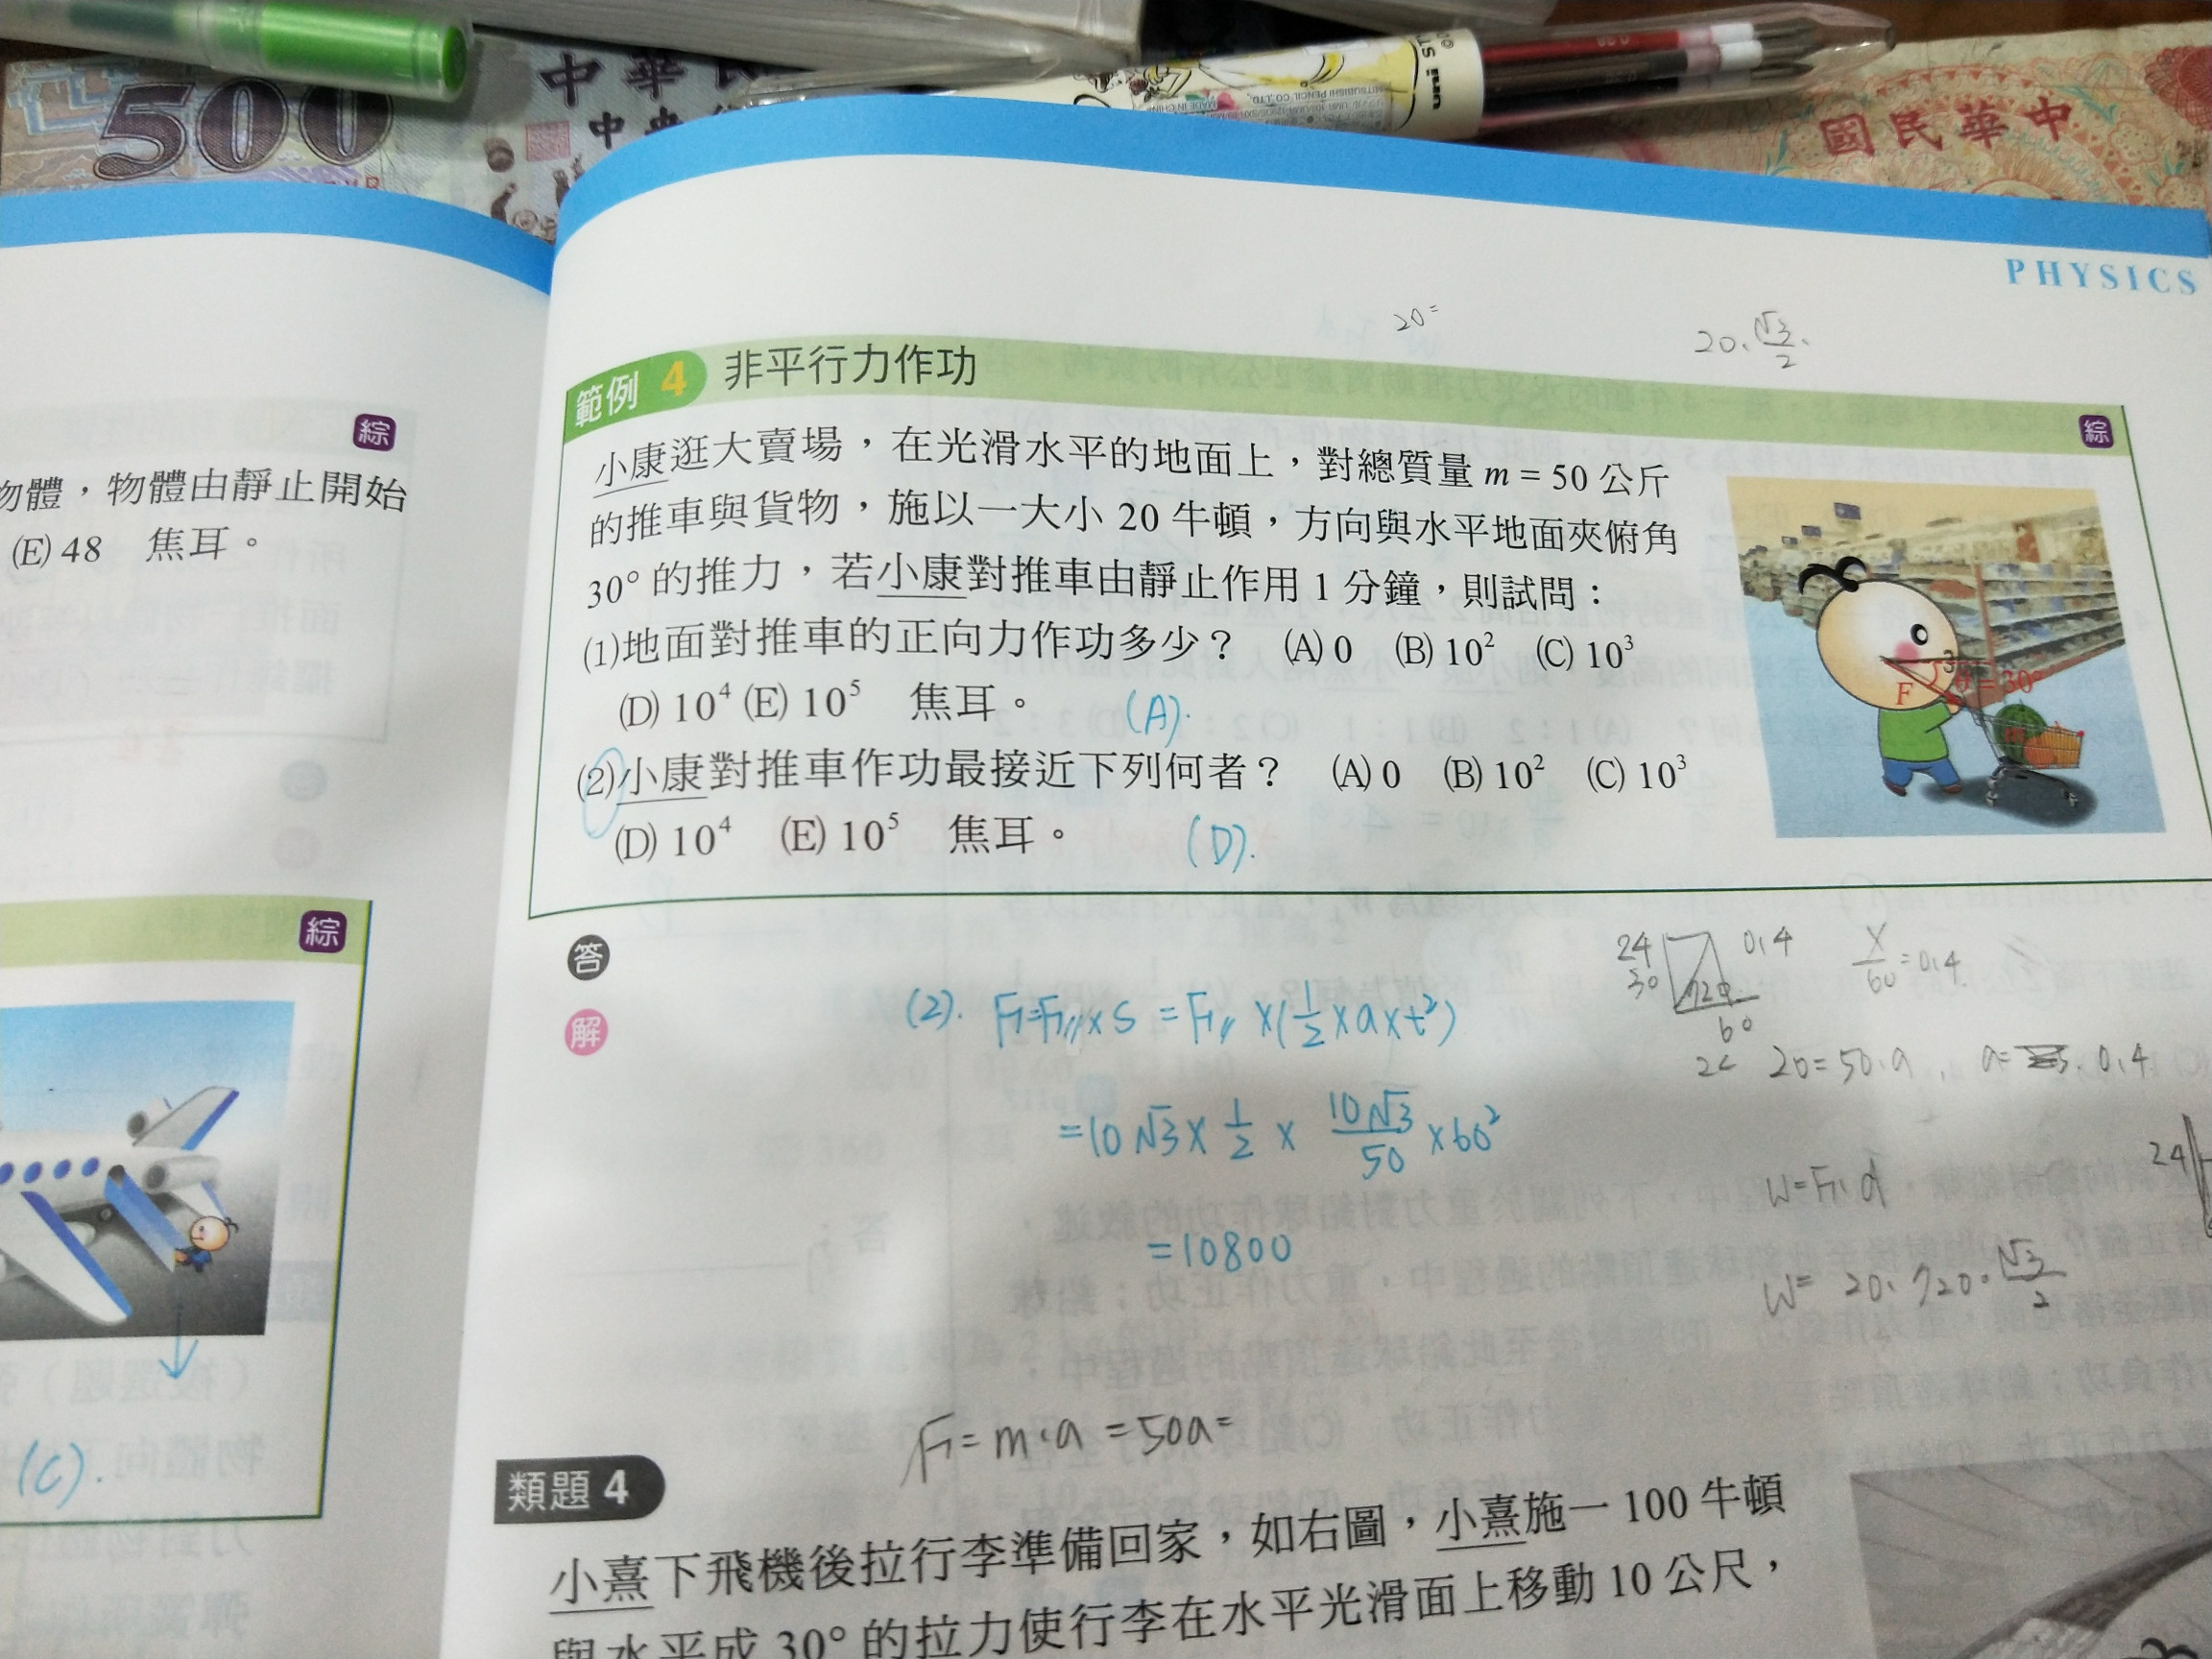 500
中華民
中央
uni
MITSUBISHI PENCIL CO.,LTD.
MADE IN CHINA
國民華中
PHYSICS
綜
物體，物體由靜止開始
(E) 48 焦耳。
綜
(C).
20=
20.√3/2.
範例 4 非平行力作功
綜
小康逛大賣場，在光滑水平的地面上，對總質量 m = 50 公斤
的推車與貨物，施以一大小 20 牛頓，方向與水平地面夾俯角
30° 的推力，若小康對推車由靜止作用 1 分鐘，則試問：
(1)地面對推車的正向力作功多少？ (A) 0 (B) 10² (C) 10³
(D) 10⁴ (E) 10⁵ 焦耳。 (A).
(2)小康對推車作功最接近下列何者？ (A) 0 (B) 10² (C) 10³
(D) 10⁴ (E) 10⁵ 焦耳。 (D).
F θ = 30°
答
解
(2). F=F// x S = F// x (1/2 x a x t²)
=10√3 x 1/2 x 10√3/50 x 60²
=10800
24 0.4 x/60=0.4
30 720
60
20=50.a, a= 0.4
24
W=F.d
W= 20.720.√3/2
F=m.a=50a=
類題 4
小熹下飛機後拉行李準備回家，如右圖，小熹施一 100 牛頓
與水平成 30° 的拉力使行李在水平光滑面上移動 10 公尺，